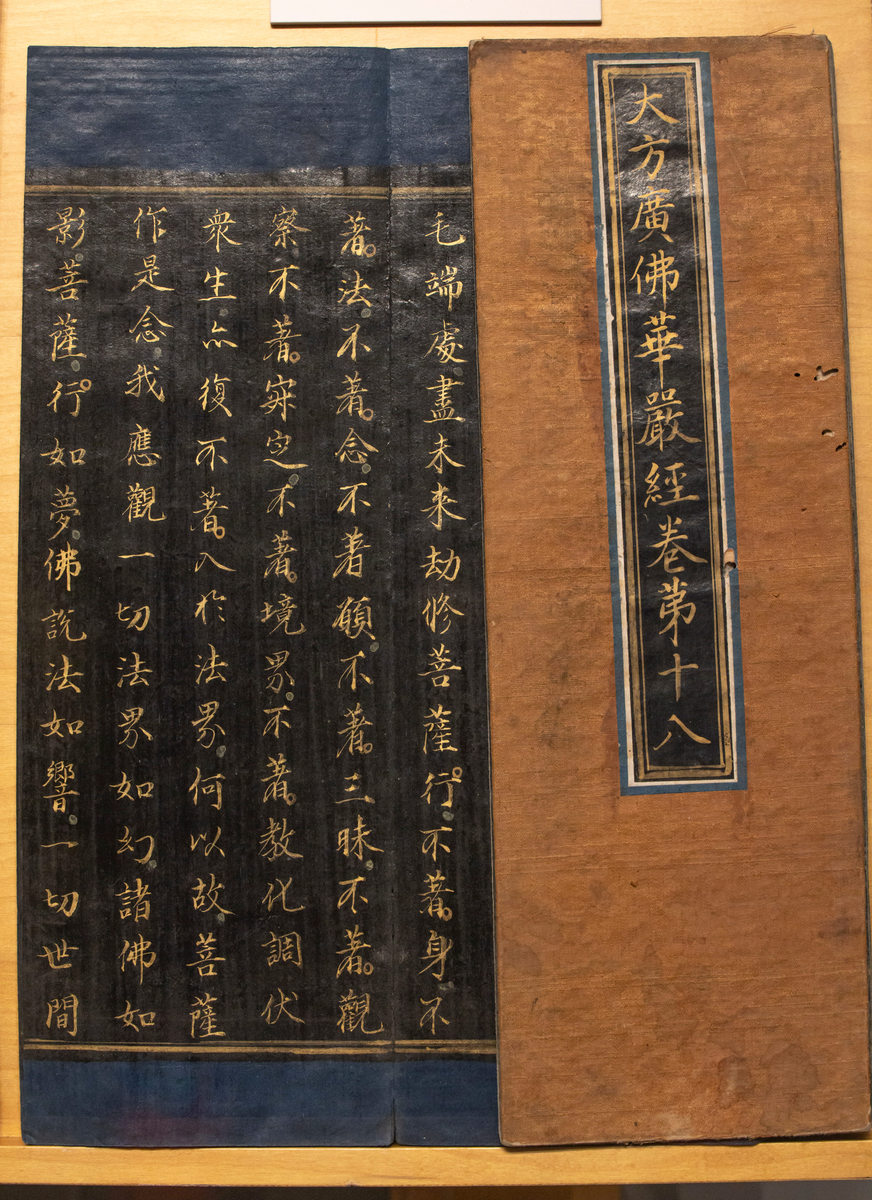 大方廣佛華嚴經卷第十八
毛端處盡未来劫修菩薩行。不著。身不
著。法不著。念不著願不著。三昧不著。觀
察不著。寂定不著。境界不著。教化調伏
衆生亦復不著。入於法界何以故菩薩
作是念我應觀一切法界如幻諸佛如
影菩薩行。如夢佛說法如響一切世間